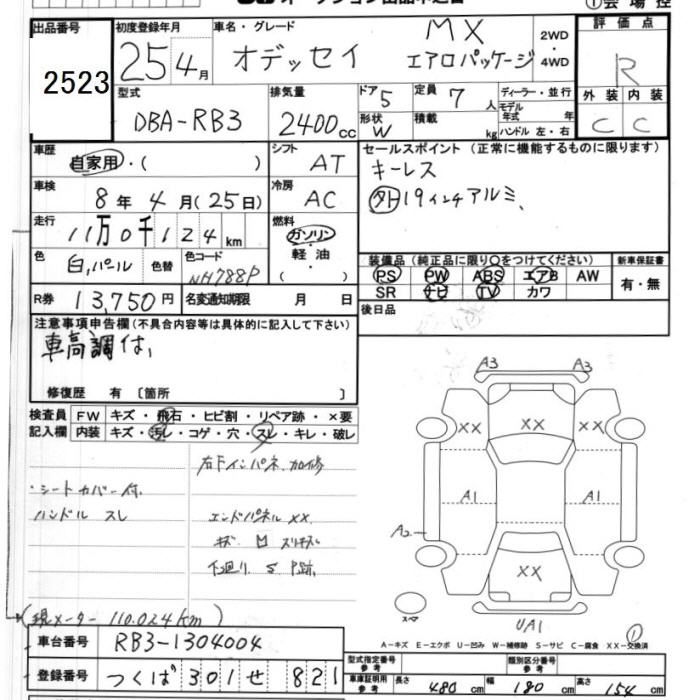 ①会場控
出品番号
2523
初度登録年月
25年4月
車名・グレード
オデッセイ
MX
エアロパッケージ
2WD
・
4WD
評価点
R
外装 内装
C C
型式
DBA-RB3
排気量
2400cc
ドア 5
形状 W
定員 7人
積載 kg
ディーラー・並行
モデル年式 年
ハンドル 左・右
車歴
自家用・( )
シフト
AT
車検
8年4月(25日)
冷房
AC
走行
11万0千124km
燃料
ガソリン
・
軽油
( )
色
白,パール
色替
色コード
NH788P
R券
13,750円
名変通知期限 月 日
セールスポイント (正常に機能するものに限ります)
キーレス
外19インチアルミ、
装備品 (純正品に限り○をつけてください)
PS PW ABS エアB AW
SR ナビ TV カワ
新車保証書
有・無
後日品
注意事項申告欄(不具合内容等は具体的に記入して下さい)
車高調付、
修復歴 有 〔箇所 〕
検査員
記入欄
FW キズ・飛石・ヒビ割・リペア跡・×要
内装 キズ・汚レ・コゲ・穴・スレ・キレ・破レ
右Fインパネ、加修
・シートカバー付.
ハンドル スレ
エンドパネル XX.
下廻り、S P跡,
(現メーター 110.024km)
A3 A3
XX XX XX
A1 A1
A2
XX
スペア
UA1
①
A-キズ E-エクボ U-凹み W-補修跡 S-サビ C-腐食 XX-交換済
車台番号
RB3-1304004
登録番号
つくば 301 せ 821
型式指定番号
参考
類別区分番号
参考
車庫証明
参考
長さ 480cm 幅 180cm 高さ 154cm